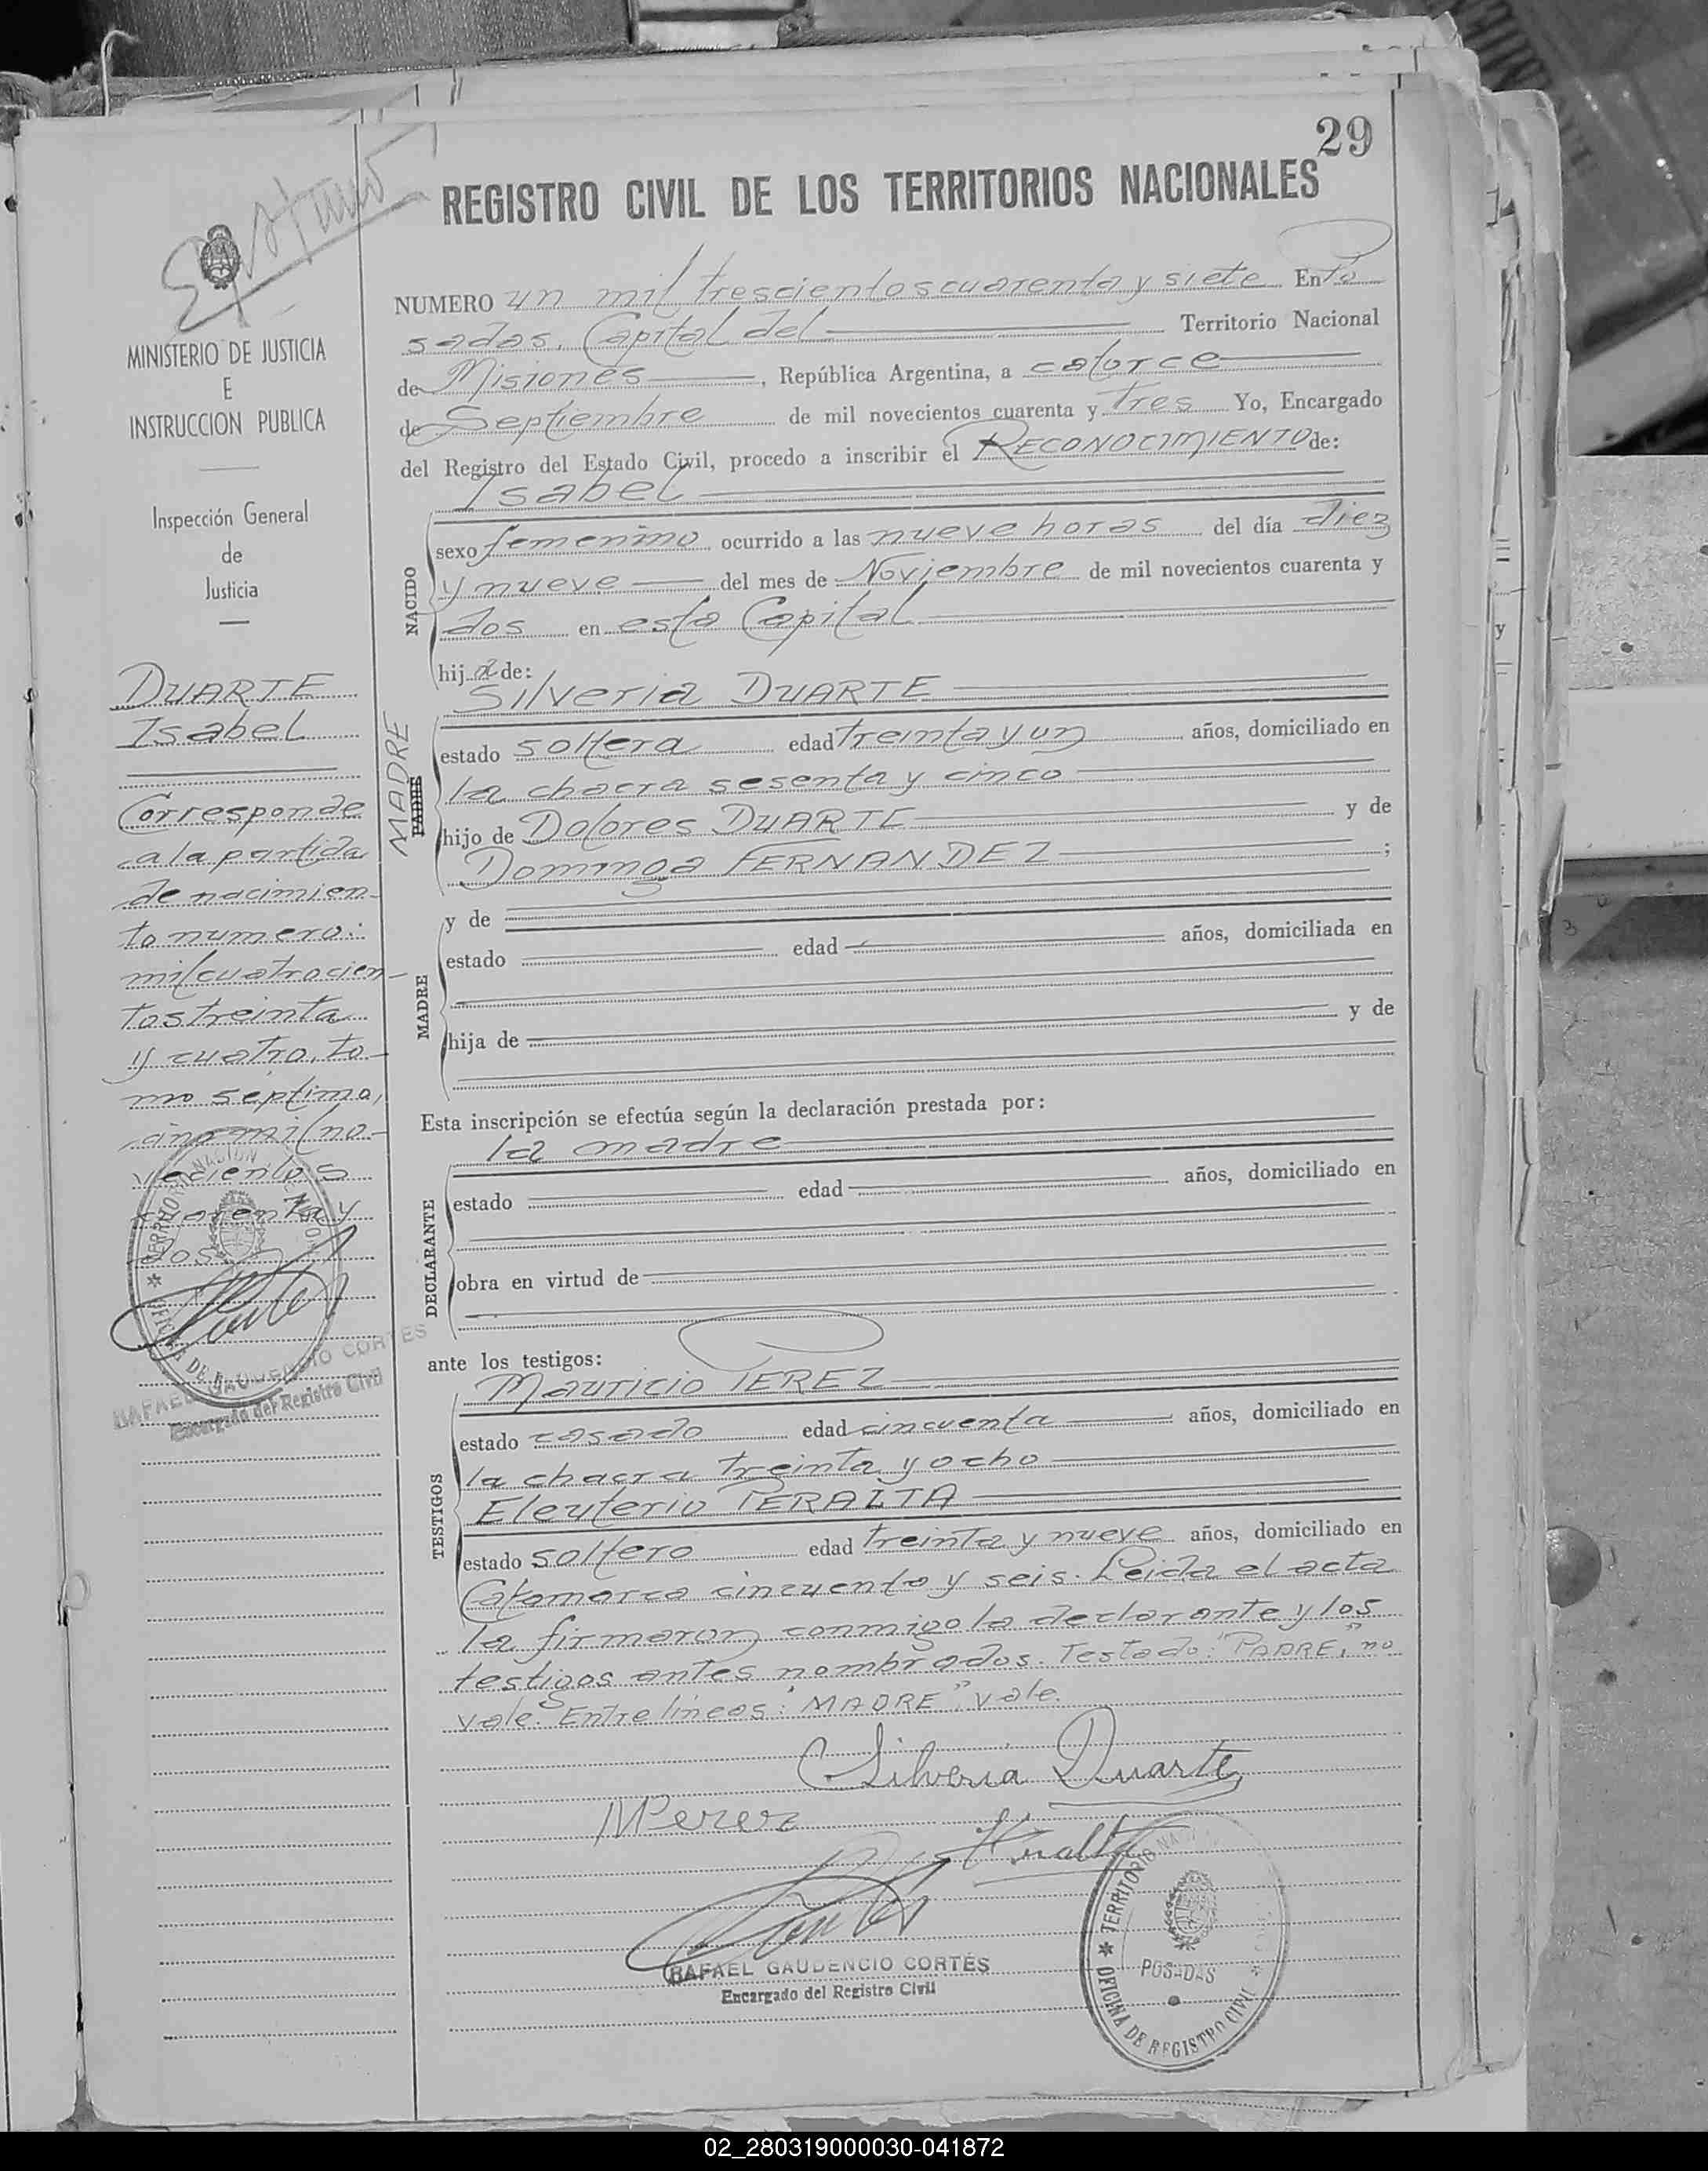 29
REGISTRO CIVIL DE LOS TERRITORIOS NACIONALES
NUMERO un mil trescientos cuarenta y siete En Po
sadas, Capital del Territorio Nacional
de Misiones, República Argentina, a catorce
de Septiembre de mil novecientos cuarenta y tres Yo, Encargado
del Registro del Estado Civil, procedo a inscribir el RECONOCIMIENTO de:
Isabel
NACIDO
sexo femenino ocurrido a las nueve horas del día diez
y nueve del mes de Noviembre de mil novecientos cuarenta y
dos en esta Capital
hija de:
Silveria DUARTE
MADRE
PADRE
estado soltera edad treinta y un años, domiciliado en
la chacra sesenta y cinco
hijo de Dolores DUARTE y de
Dominga FERNANDEZ ;
y de
MADRE
estado edad años, domiciliada en
hija de y de
Esta inscripción se efectúa según la declaración prestada por:
la madre
DECLARANTE
estado edad años, domiciliado en
obra en virtud de
ante los testigos:
Mauricio PEREZ
TESTIGOS
estado casado edad cincuenta años, domiciliado en
la chacra treinta y ocho
Eleuterio PERALTA
estado soltero edad treinta y nueve años, domiciliado en
Catamarca cincuenta y seis. Leida el acta
la firmaron conmigo la declarante y los
testigos antes nombrados. Testado: "PADRE," no
vale. Entre lineas: "MADRE", vale.
Silveria Duarte
M Perez
Peralta
RAFAEL GAUDENCIO CORTÉS
Encargado del Registro Civil
TERRITORIO NA
POSADAS
OFICINA DE REGISTRO CIVIL
MINISTERIO DE JUSTICIA
E
INSTRUCCION PUBLICA
Inspección General
de
Justicia
DUARTE
Isabel
Corresponde
a la partida
de nacimien-
to numero:
mil cuatrocien-
tos treinta
y cuatro, to-
mo séptimo,
año mil no-
vecientos
cuarenta y
dos
RAFAEL GAUDENCIO CORTÉS
Encargado del Registro Civil
02_280319000030-041872